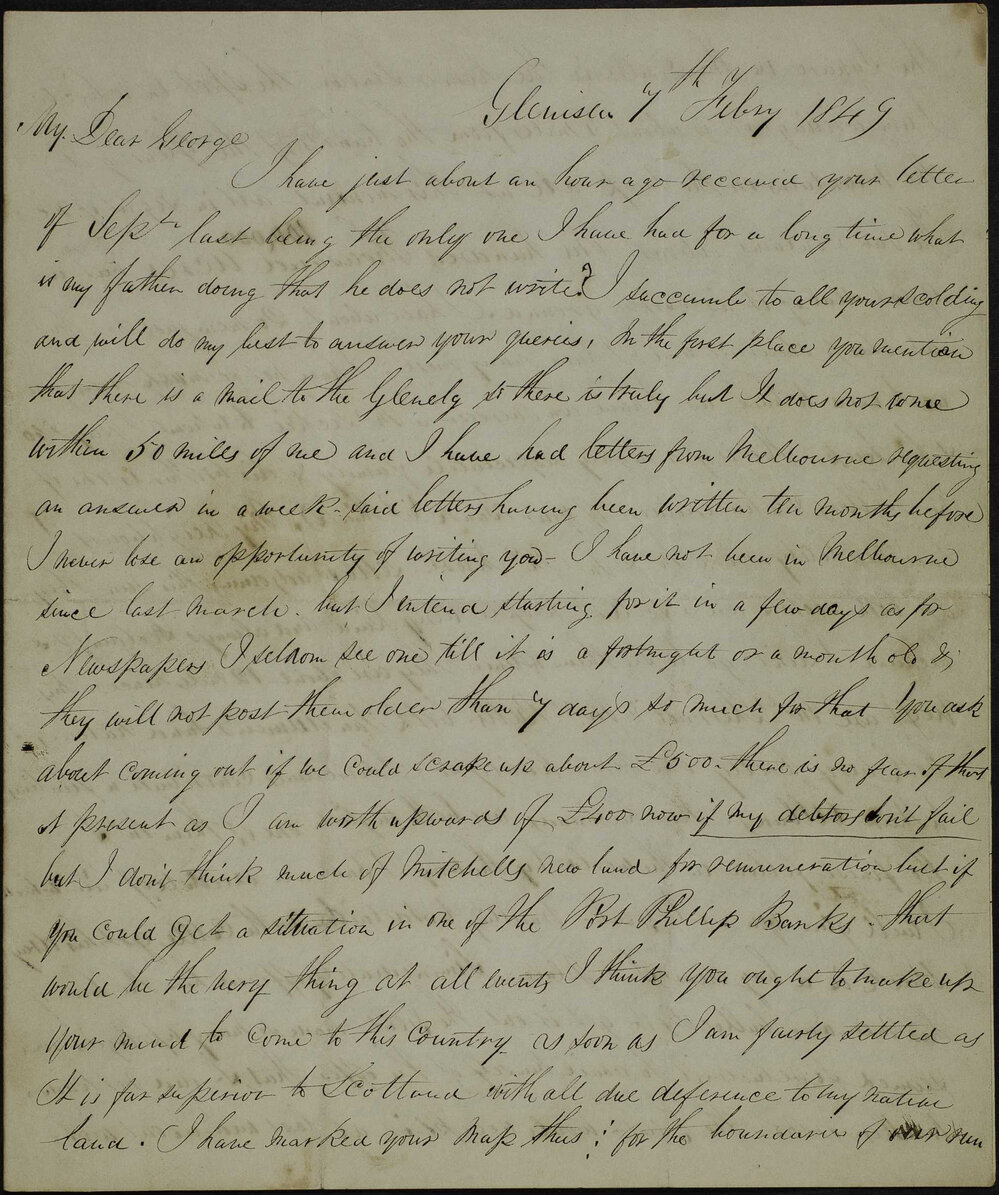 Glenisla 7th Febry 1849
My Dear George
I have just about an hour ago received your letter
of Septr last being the only one I have had for a long time what
is my father doing that he does not write? I succumb to all your scolding
and will do my best to answer your queries, In the first place you mention
that there is a mail to the Glenelg so there is truly but It does not come
within 50 miles of me and I have had letters from Melbourne requesting
an answer in a week - said letters having been written ten months before
I never lose an opportunity of writing you - I have not been in Melbourne
since last March. but I intend starting for it in a few days as for
Newspapers I seldom see one till it is a fortnight or a month old &
they will not post them older than 7 days so much for that You ask
about coming out if we could scrape up about £500. there is no fear of that
at present as I am worth upwards of £400 now if my debtors don't fail
but I don't think much of Mitchells new land for remuneration but if
you could get a situation in one of the Port Phillip Banks. that
would be the very thing at all events I think you ought to make up
your mind to come to this Country as soon as I am fairly settled as
It is far superior to Scotland with all due deference to my native
land. I have marked your map thus for the boundaries of our run